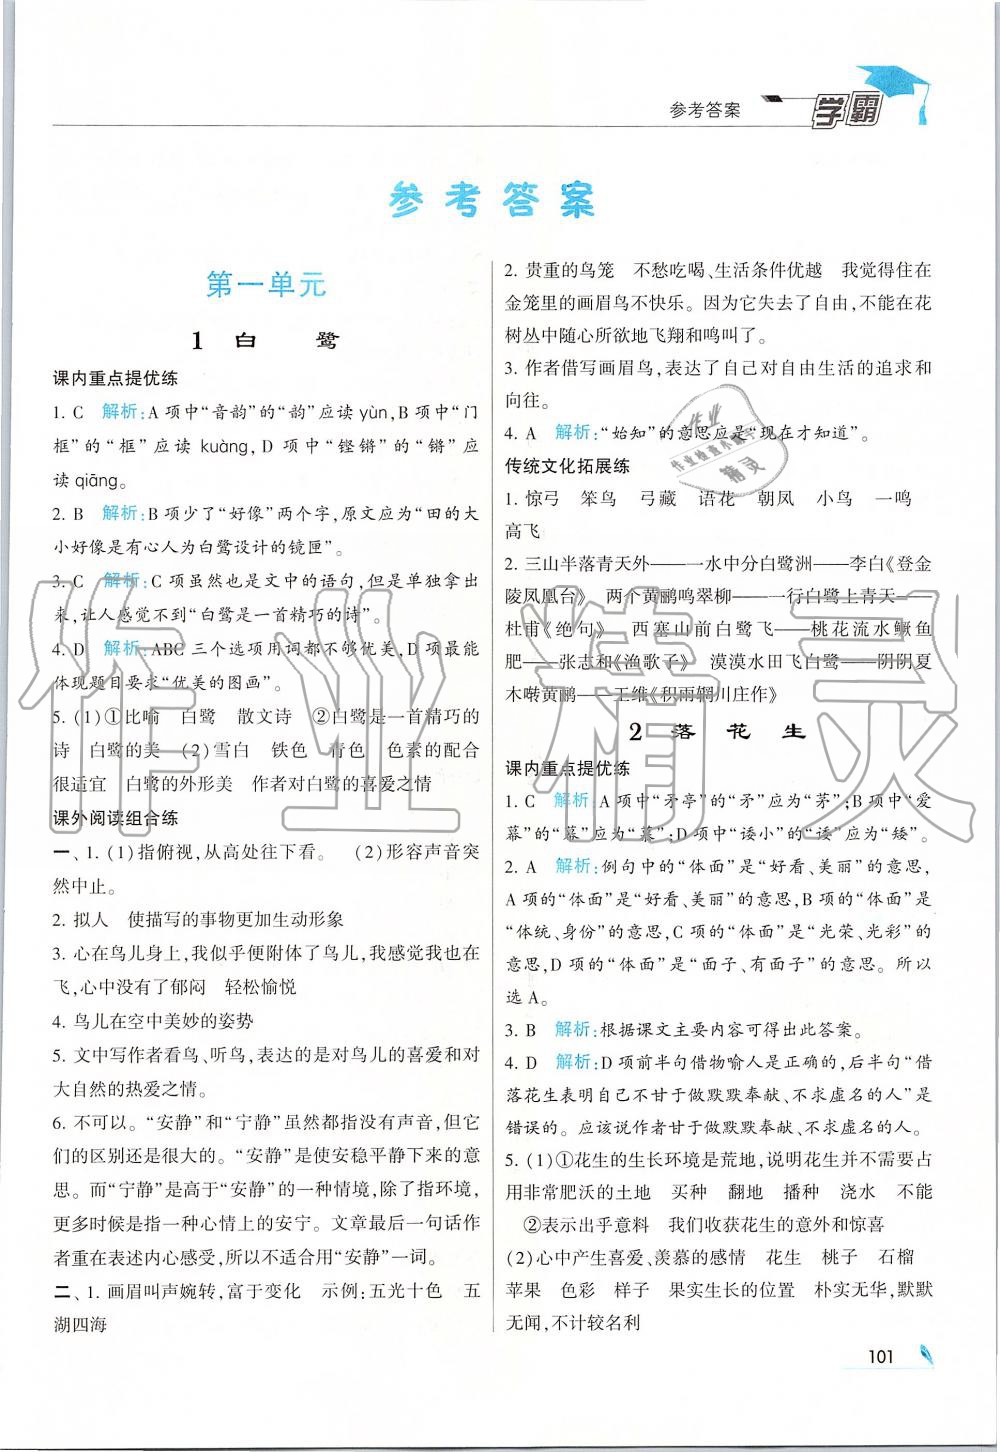 参考答案
学霸
参考答案
第一单元
1 白 鹭
课内重点提优练
1. C 解析:A 项中“音韵”的“韵”应读 yùn,B 项中“门
框”的“框”应读 kuàng,D 项中“铿锵”的“锵”应
读 qiāng。
2. B 解析:B 项少了“好像”两个字,原文应为“田的大
小好像是有心人为白鹭设计的镜匣”。
3. C 解析:C 项虽然也是文中的语句,但是单独拿出
来,让人感觉不到“白鹭是一首精巧的诗”。
4. D 解析:ABC 三个选项用词都不够优美,D 项最能
体现题目要求“优美的图画”。
5. (1)①比喻 白鹭 散文诗 ②白鹭是一首精巧的
诗 白鹭的美 (2)雪白 铁色 青色 色素的配合
很适宜 白鹭的外形美 作者对白鹭的喜爱之情
课外阅读组合练
一、1. (1)指俯视,从高处往下看。 (2)形容声音突
然中止。
2. 拟人 使描写的事物更加生动形象
3. 心在鸟儿身上,我似乎便附体了鸟儿我感觉我也在
飞,心中没有了郁闷 轻松愉悦
4. 鸟儿在空中美妙的姿势
5. 文中写作者看鸟、听鸟,表达的是对鸟儿的喜爱和对
大自然的热爱之情。
6. 不可以。“安静”和“宁静”虽然都指没有声音,但它
们的区别还是很大的。“安静”是使安稳平静下来的意
思。而“宁静”是高于“安静”的一种情境,除了指环境,
更多时候是指一种心情上的安宁。文章最后一句话作
者重在表述内心感受,所以不适合用“安静”一词。
二、1. 画眉叫声婉转,富于变化 示例:五光十色 五
湖四海
2. 贵重的鸟笼 不愁吃喝、生活条件优越 我觉得住在
金笼里的画眉鸟不快乐。因为它失去了自由,不能在花
树丛中随心所欲地飞翔和鸣叫了。
3. 作者借写画眉鸟,表达了自己对自由生活的追求和
向往。
4. A 解析:“始知”的意思应是“现在才知道”。
传统文化拓展练
1. 惊弓 笨鸟 弓藏 语花 朝凤 小鸟 一鸣
高飞
2. 三山半落青天外——一水中分白鹭洲——李白《登金
陵凤凰台》 两个黄鹂鸣翠柳——一行白鹭上青天——
杜甫《绝句》 西塞山前白鹭飞——桃花流水鳜鱼
肥——张志和《渔歌子》 漠漠水田飞白鹭——阴阴夏
木啭黄鹂——王维《积雨辋川庄作》
2 落 花 生
课内重点提优练
1. C 解析:A 项中“矛亭”的“矛”应为“茅”;B 项中“爱
幕”的“幕”应为“慕”;D 项中“诿小”的“诿”应为“矮”。
2. A 解析:例句中的“体面”是“好看、美丽”的意思,
A 项的“体面”是“好看、美丽”的意思,B 项的“体面”是
“体统、身份”的意思,C 项的“体面”是“光荣、光彩”的
意思,D 项的“体面”是“面子、有面子”的意思。所以
选 A。
3. B 解析:根据课文主要内容可得出此答案。
4. D 解析:D 项前半句借物喻人是正确的,后半句“借
落花生表明自己不甘于做默默奉献、不求虚名的人”是
错误的。应该说作者甘于做默默奉献、不求虚名的人。
5. (1)①花生的生长环境是荒地,说明花生并不需要占
用非常肥沃的土地 买种 翻地 播种 浇水 不能
②表示出乎意料 我们收获花生的意外和惊喜
(2)心中产生喜爱、羡慕的感情 花生 桃子 石榴
苹果 色彩 样子 果实生长的位置 朴实无华,默默
无闻,不计较名利
101
作业精灵
作业
作业检查小助手
精灵